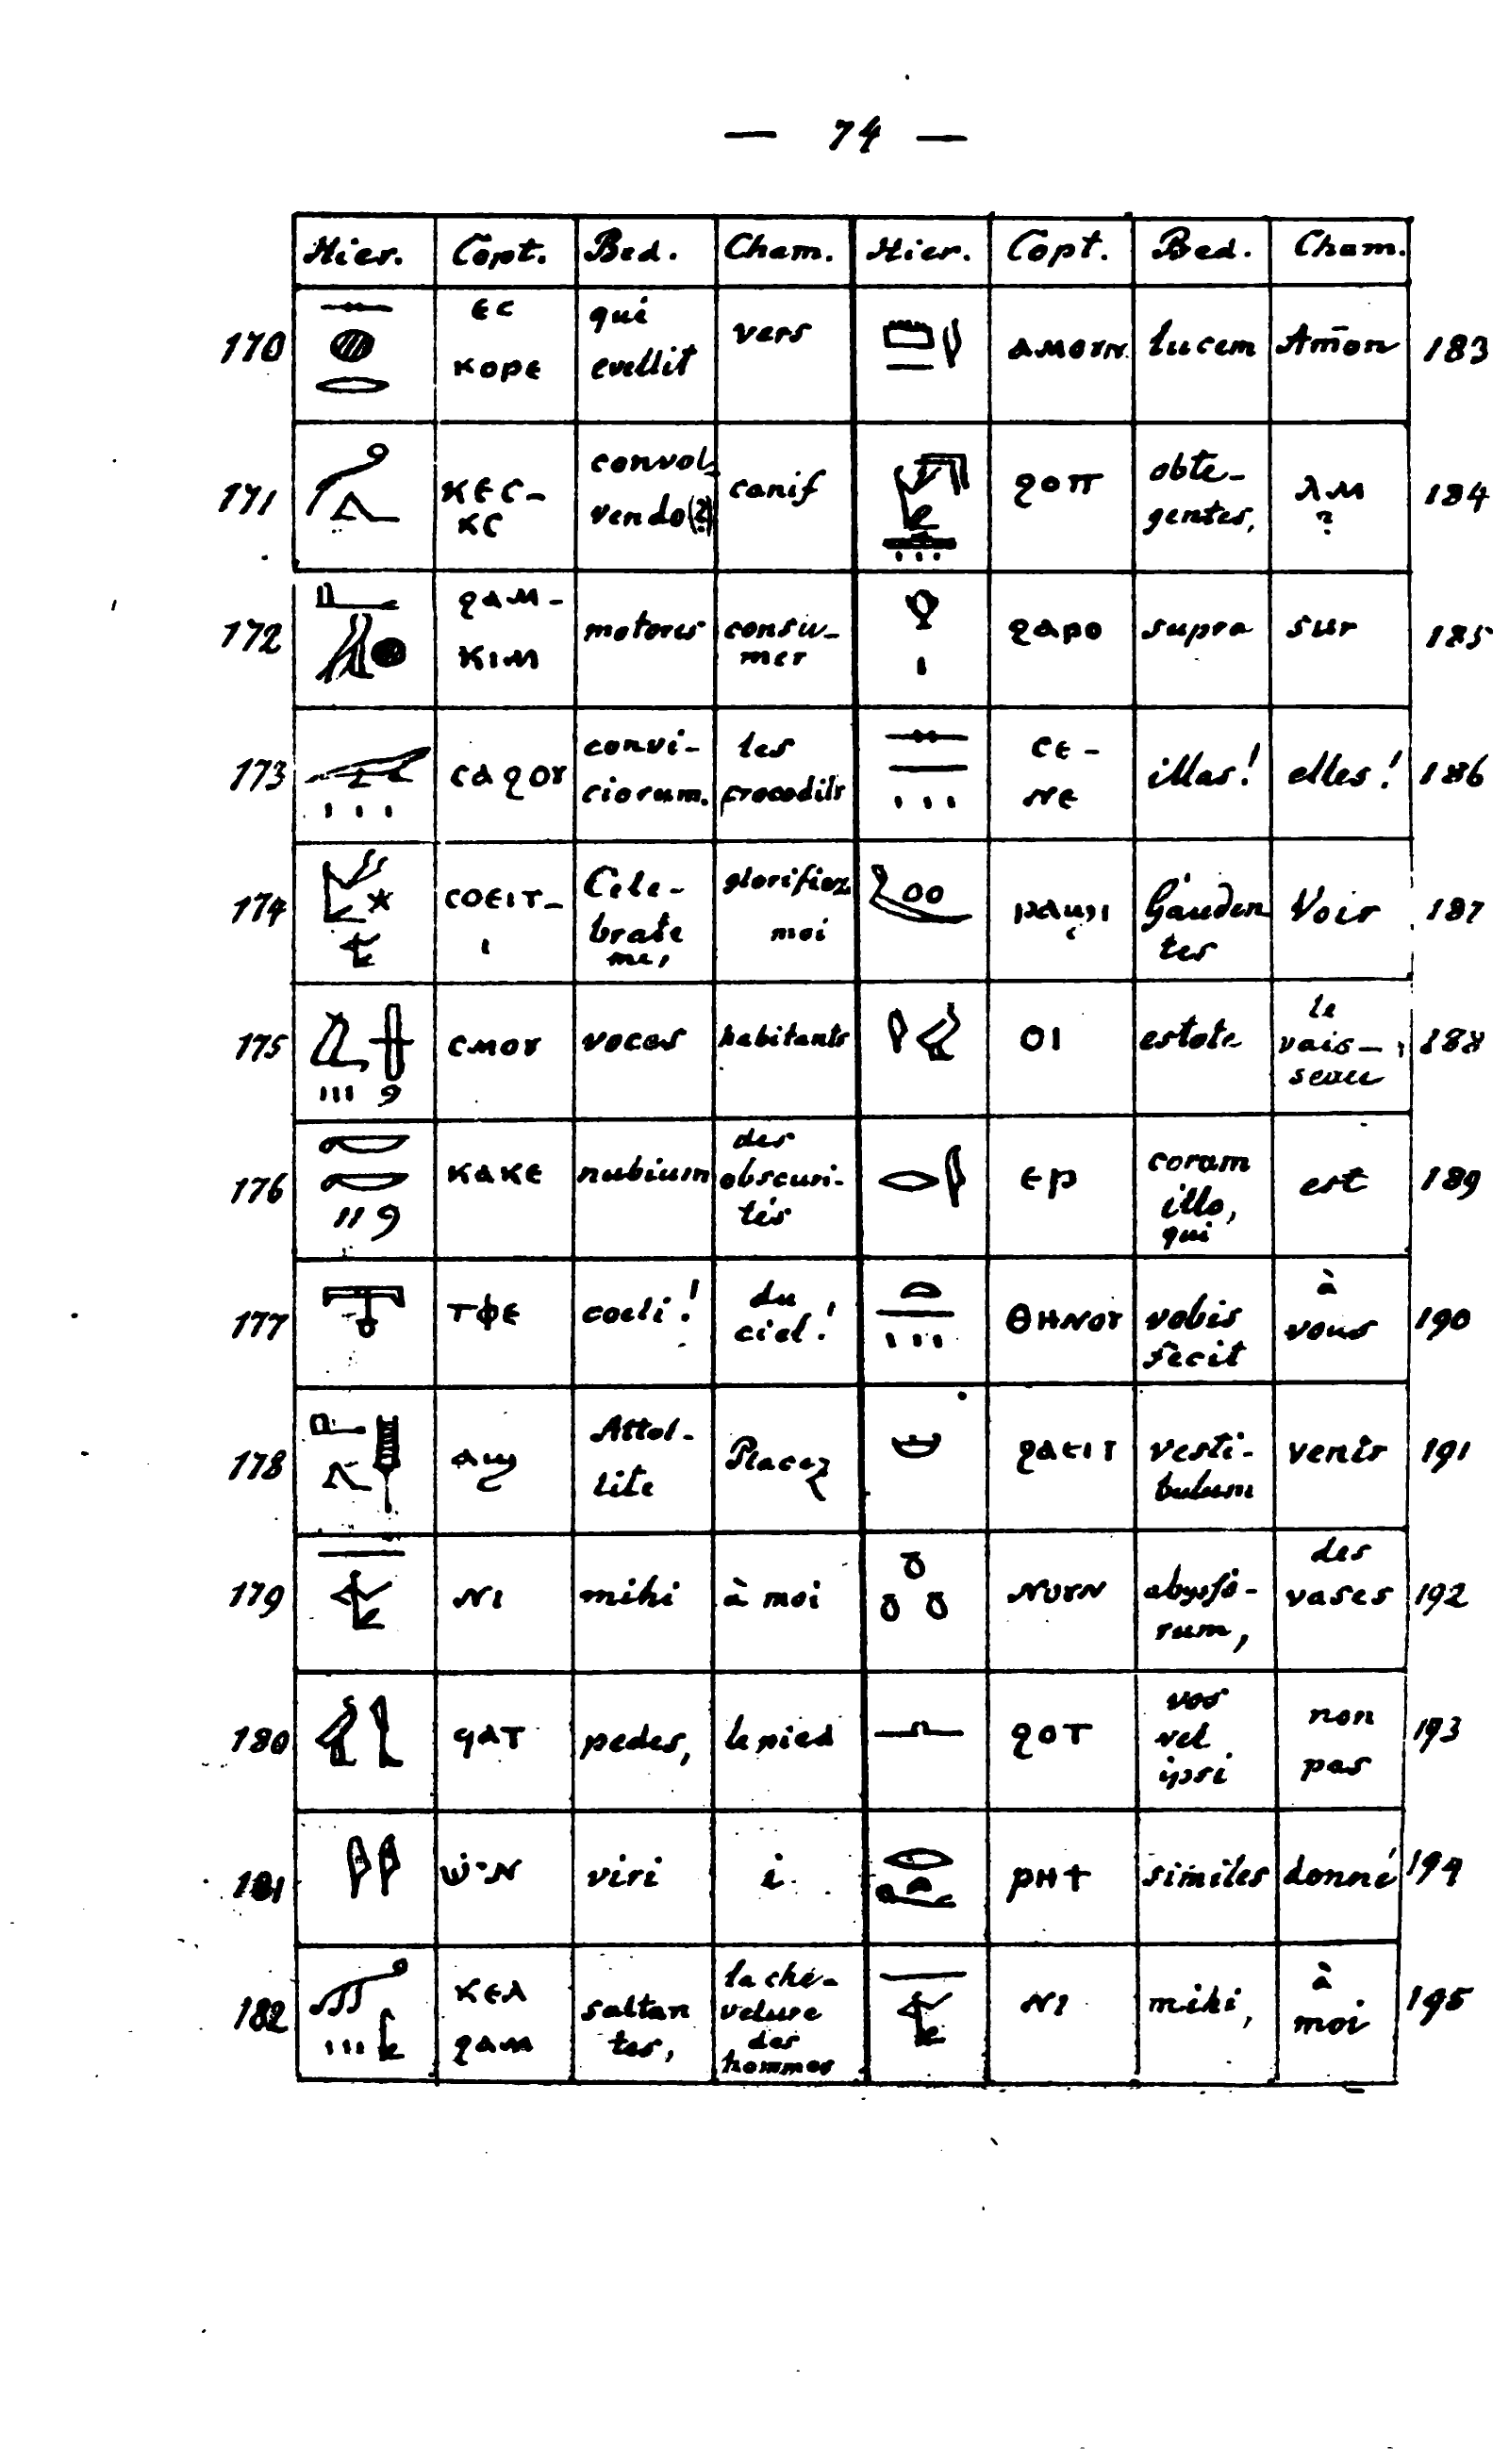 — 74 —
Hier. Copt. Bed. Cham. Hier. Copt. Bed. Cham.
170 ⲉⲥ ⲕⲟⲣⲉ qui evellit vers ⲁⲙⲟⲩⲛ lucem Amon 183
171 ⲕⲉⲥ-ⲕⲥ convol-vendo(?) canif ϩⲟⲡ obte-gentes, ⲗⲙ ? 184
172 ϩⲁⲙ-ⲕⲓⲙ motores consu-mer ϩⲁⲣⲟ supra sur 185
173 ⲥⲁϩⲟⲩ convi-ciorum. les crocodils ⲥⲉ-ⲛⲉ illas! elles! 186
174 ⲥⲟⲉⲓⲧ-ⲓ Cele-brate me, glorifiez moi ⲣⲁϣⲓ Gauden tes Voir 187
175 ⲥⲙⲟⲩ voces habitants ⲟⲓ estote le vais-seau 188
176 ⲕⲁⲕⲉ nubium des obscuri-tés ⲉⲣ coram illo, qui est 189
177 ⲧⲫⲉ coeli! du ciel! ⲑⲏⲛⲟⲩ vobis fecit à vous 190
178 ⲁϣ Attol-lite Placez ϩⲁⲉⲓⲧ vesti-bulum venir 191
179 ⲛⲓ mihi à moi ⲛⲟⲩⲛ abysso-rum, des vases 192
180 ϥⲁⲧ pedes, le pied ϩⲟⲧ vos vel ipsi non pas 193
181 viri i ⲣⲏϯ similes donné 194
182 ⲕⲉⲗ ϩⲁⲙ saltan tes, la che-velure des hommes ⲛⲓ mihi, à moi 195